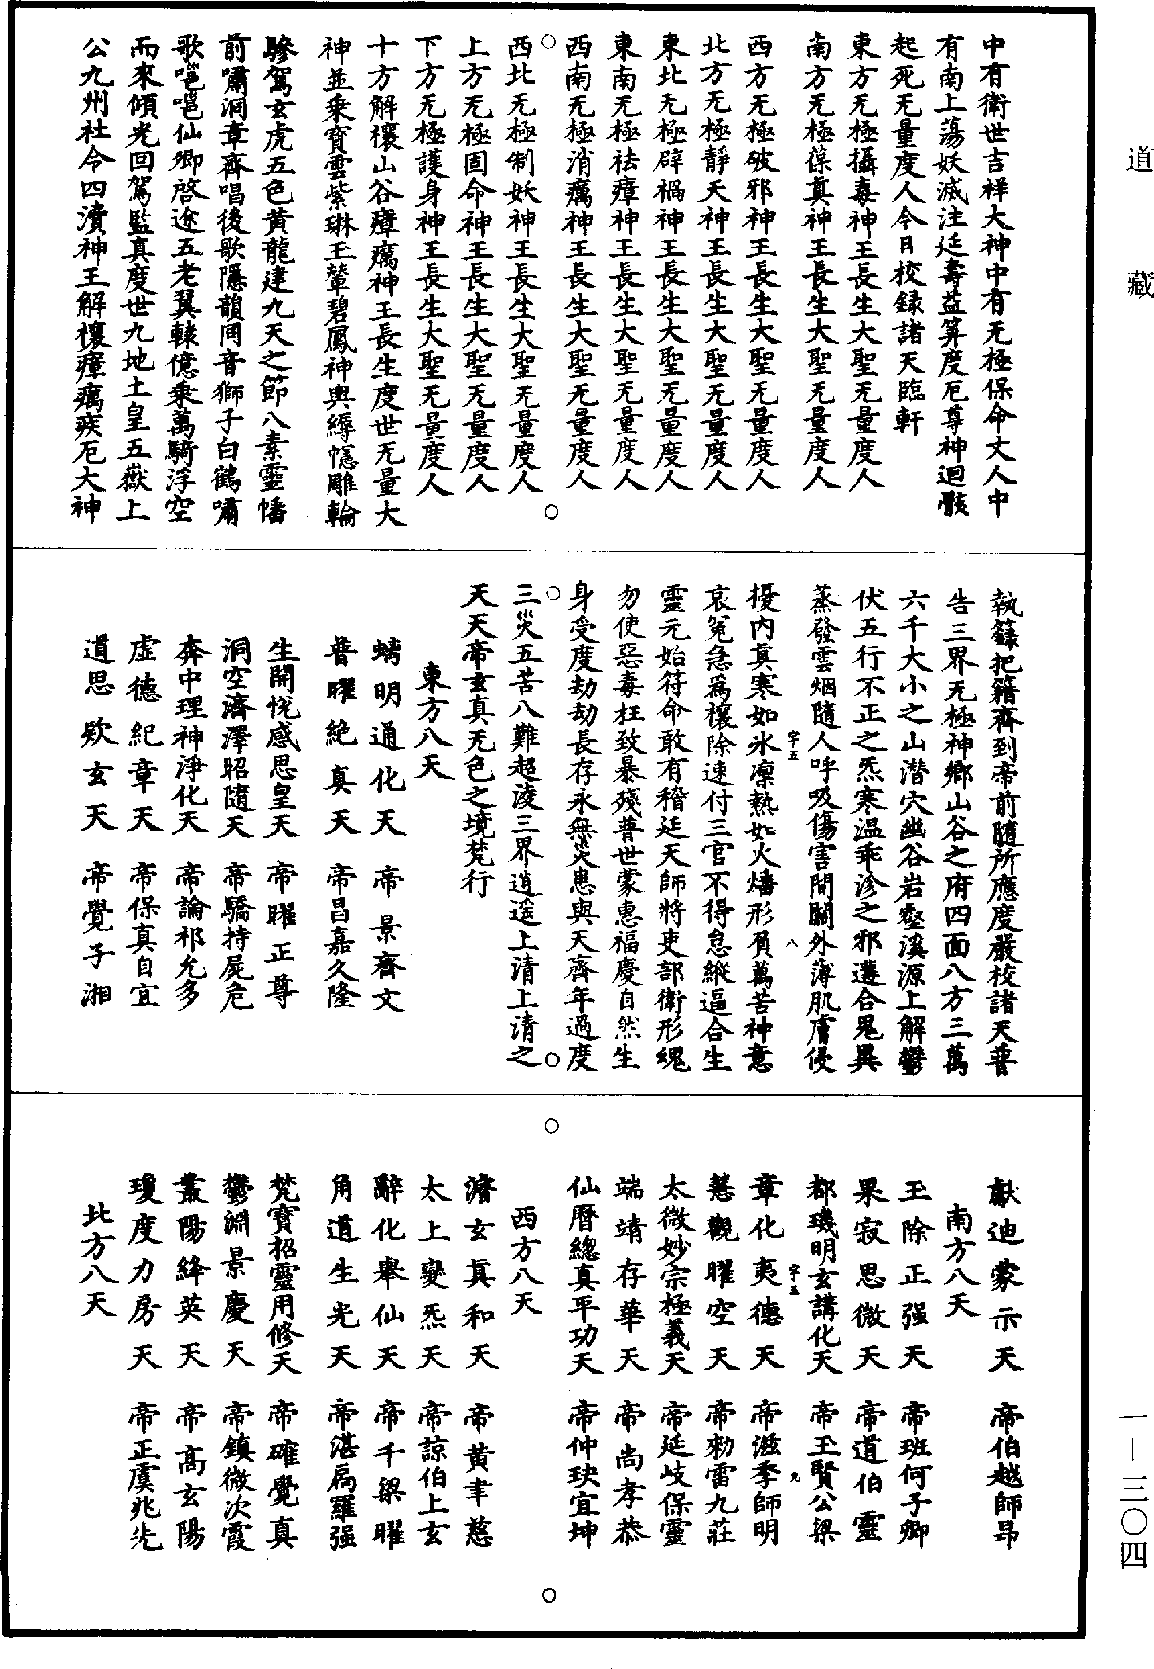 道藏
中有衛世吉祥大神中有无極保命丈人中
有南上蕩妖滅注延壽益筭度厄尊神迴骸
起死无量度人今日校錄諸天臨軒
東方无極攝毒神王長生大聖无量度人
南方无極葆真神王長生大聖无量度人
西方无極破邪神王長生大聖无量度人
北方无極靜天神王長生大聖无量度人
東北无極辟禍神王長生大聖无量度人
東南无極祛瘴神王長生大聖无量度人
西南无極消癘神王長生大聖无量度人
西北无極制妖神王長生大聖无量度人
上方无極固命神王長生大聖无量度人
下方无極護身神王長生大聖无量度人
十方解禳山谷瘴癘神王長生度世无量大
神並乘寶雲紫琳玉輦碧鳳神輿縟幰雕輪
驂駕玄虎五色黃龍建九天之節八素靈幡
前嘯洞章齊唱後歌隱韻同音獅子白鶴嘯
歌嗈嗈仙卿啓途五老翼轅億乘萬騎浮空
而來傾光回駕監真度世九地土皇五嶽上
公九州社令四瀆神王解禳瘴癘疾厄大神
執籙把籍齊到帝前隨所應度嚴校諸天普
告三界无極神鄉山谷之府四面八方三萬
六千大小之山潜穴幽谷岩壑溪源上解鬱
伏五行不正之炁寒温乖沴之邪遘合鬼異
蒸發雲烟隨人呼吸傷害間關外薄肌膚侵
字五 八
擾内真寒如氷凛熱如火燔形質萬苦神意
哀冤急爲禳除速付三官不得怠縱逼合生
靈元始符命敢有稽延天師將吏部衛形魂
勿使惡毒枉致暴殘普世蒙惠福慶自然生
身受度劫劫長存永無災患與天齊年過度
三災五苦八難超淩三界逍遥上清上清之
天天帝玄真无色之境梵行
東方八天
蠕明通化天 帝景齊文
普曜絶真天 帝昌嘉久隆
生開悅感思皇天 帝曜正尊
洞空濟澤昭隨天 帝驕持屍危
奔中理神淨化天 帝論祁允多
虛德紀章天 帝保真自宜
道思欵玄天 帝覺子湘
獻迪蒙示天 帝伯越師昂
南方八天
玉除正强天 帝班何子卿
果寂思微天 帝道伯靈
都璣明玄講化天 帝玉賢公梁
字五 九
章化夷德天 帝滋季師明
慧觀曜空天 帝勑雷九莊
太微妙宗極義天 帝延岐保靈
端靖存華天 帝尚孝恭
仙曆總真平功天 帝仲玦宜坤
西方八天
澹玄真和天 帝黃聿慈
太上變炁天 帝諒伯上玄
辭化舉仙天 帝千梁曜
角道生光天 帝湛扃羅强
梵寶招靈用修天 帝確覺真
鬱淵景慶天 帝鎮微次霞
叢陽絳英天 帝高玄陽
瓊度力房天 帝正虞兆先
北方八天
一—三〇四